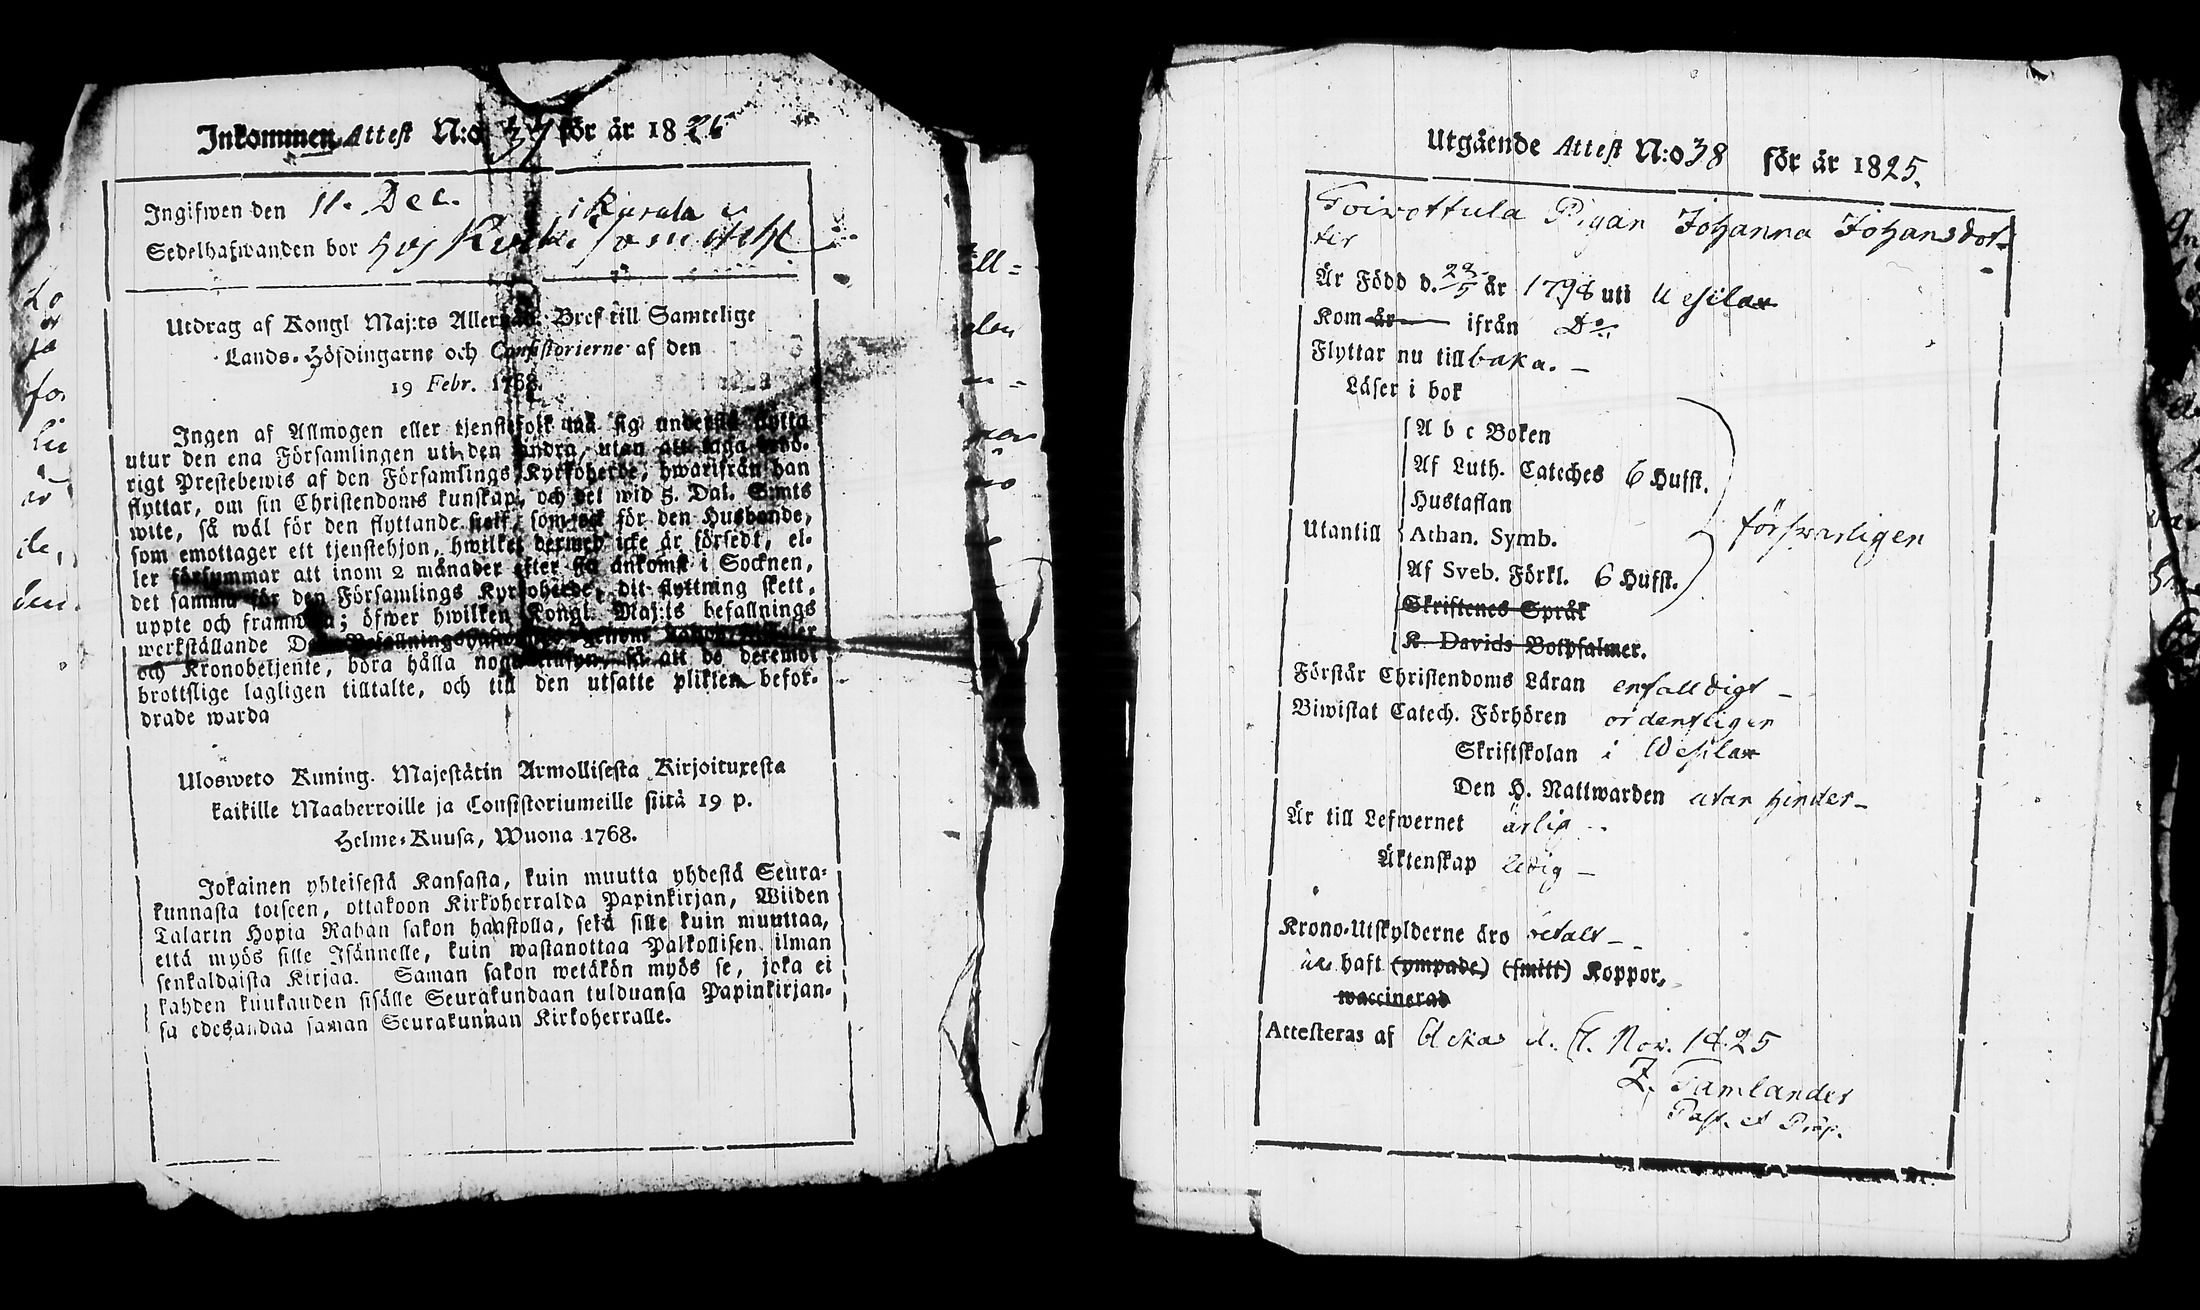 Inkommen Attest N:o 37 för år 18
Ingifwen den 11. Dec. i Kurala
Sedelhafwanden bor hos
Utdrag af Kongl Maj:ts Allernåd. Bref till Samtelige
Lands-Höfdingarne och Consistorierne af den
19 Febr. 1768.
Ingen af Allmogen eller tjenstefolk må sig understå flytta
utur den ena Församlingen uti den andra, utan att taga behö-
rigt Prestebewis af den Församlings Kyrkoherde, hwarifrån han
flyttar, om sin Christendoms kunskap, och det wid 5. Dal. S:mts
wite, så wäl för den flyttande sielf, som ock för den Husbonde,
som emottager ett tjenstehjon, hwilket dermed icke är försedt, el-
ler försummar att inom 2 månader efter sin ankomst i Socknen,
det samma för den Församlings Kyrkoherde, dit flyttning skett,
uppte och framwisa; öfwer hwilken Kongl. Maj:ts befallnings
werkställande Des Befallningshafwande, genom
och Kronobetjente, böra hålla noga tillsyn, så att de deremot
brottslige lagligen tilltalte, och till den utsatte plikten befor-
drade warda
Ulosweto Kuning. Majestätin Armollisesta Kirjoituxesta
kaikille Maaherroille ja Consistoriumeille siitä 19 p.
Helme-Kuusa, Wuona 1768.
Jokainen yhteisestä Kansasta, kuin muutta yhdestä Seura-
kunnasta toiseen, ottakoon Kirkoherralda Papinkirjan, Wiiden
Talarin Hopia Rahan sakon haastolla, sekä sille kuin muuttaa,
että myös sille Isännelle, kuin wastanottaa Palkollisen ilman
senkaldaista Kirjaa. Saman sakon wetäkön myös se, joka ei
kahden kuukauden sisälle Seurakundaan tulduansa Papinkirjan-
sa edesandaa saman Seurakunnan Kirkoherralle.
Utgående Attest N:o 38 för år 1825.
Toiwottula Pigan Johanna Johansdot-
ter
Är Född d. 29/5 år 1798 uti Wesilax
Kom år ifrån D:o
Flyttar nu tillbaka.
Läser i bok
A b c Boken
Af Luth. Cateches 6 Hufst.
Hustaflan
Utantill Athan. Symb. förswarligen
Af Sveb. Förkl. 6 Hufst.
Skriftenes Språk
K Davids Botpsalmer.
Förstår Christendoms Läran enfalldigt
Biwistat Catech. Förhören ordentligen
Skriftskolan i Wesilax
Den H. Nattwarden utan hinder
Är till Lefwernet ärlig
Äktenskap ledig
Krono-Utskylderne äro betalt
haft (ympade) (smitt) Koppor,
waccinerad
Attesteras af d. Nov. 1825
Z. Tamlander
Past. et Præp.